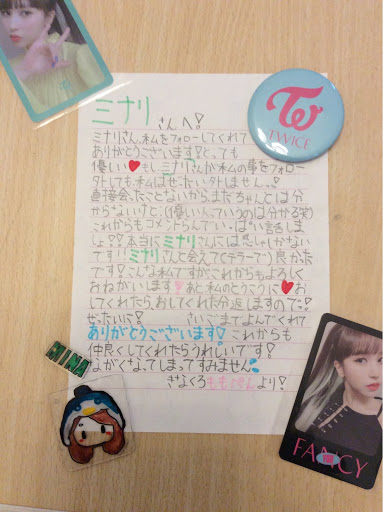 ミナリ さんへ!
ミナリさん、私をフォローしてくれて
ありがとうございます!とっても
優しい♥もしミナリさんが私の事をフォロー
外しても私はぜったい外しません
直接会ったことないから、まだちゃんとは分
からないけど(優しい人っていうのは分かる笑)
これからもコメントらんでいっぱい話しま
しょ!!本当にミナリさんには感しゃしかない
です!!ミナリさんと会えて(テラーで)良かった
です!こんな私ですが、これからもよろしく
おねがいします!あと私のとうこうに♥お
してくれたら、おしてくれた分返しますので
ぜったいに! さいごまでよんでくれて
ありがとうございます! これからも
仲良くしてくれたらうれしいです!
ながくなってしまってすみません
きなくろももぺんより!
TWICE
MINA
FANCY